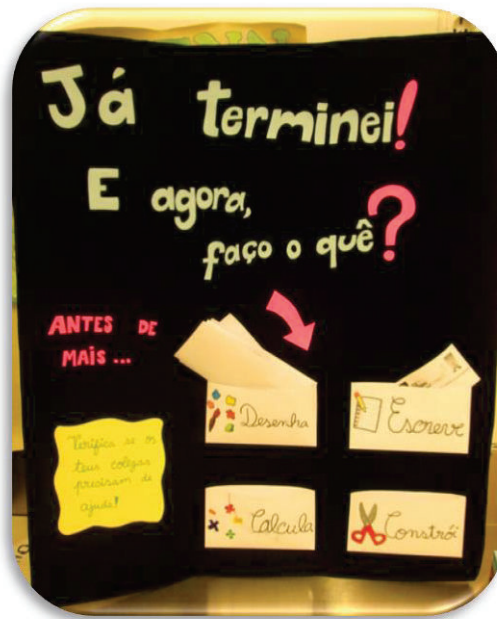 Já terminei!
E agora,
faço o quê?
ANTES DE
MAIS ...
Verifica se os
teus colegas
precisam de
ajuda!
Desenha
Escreve
Calcula
Constrói